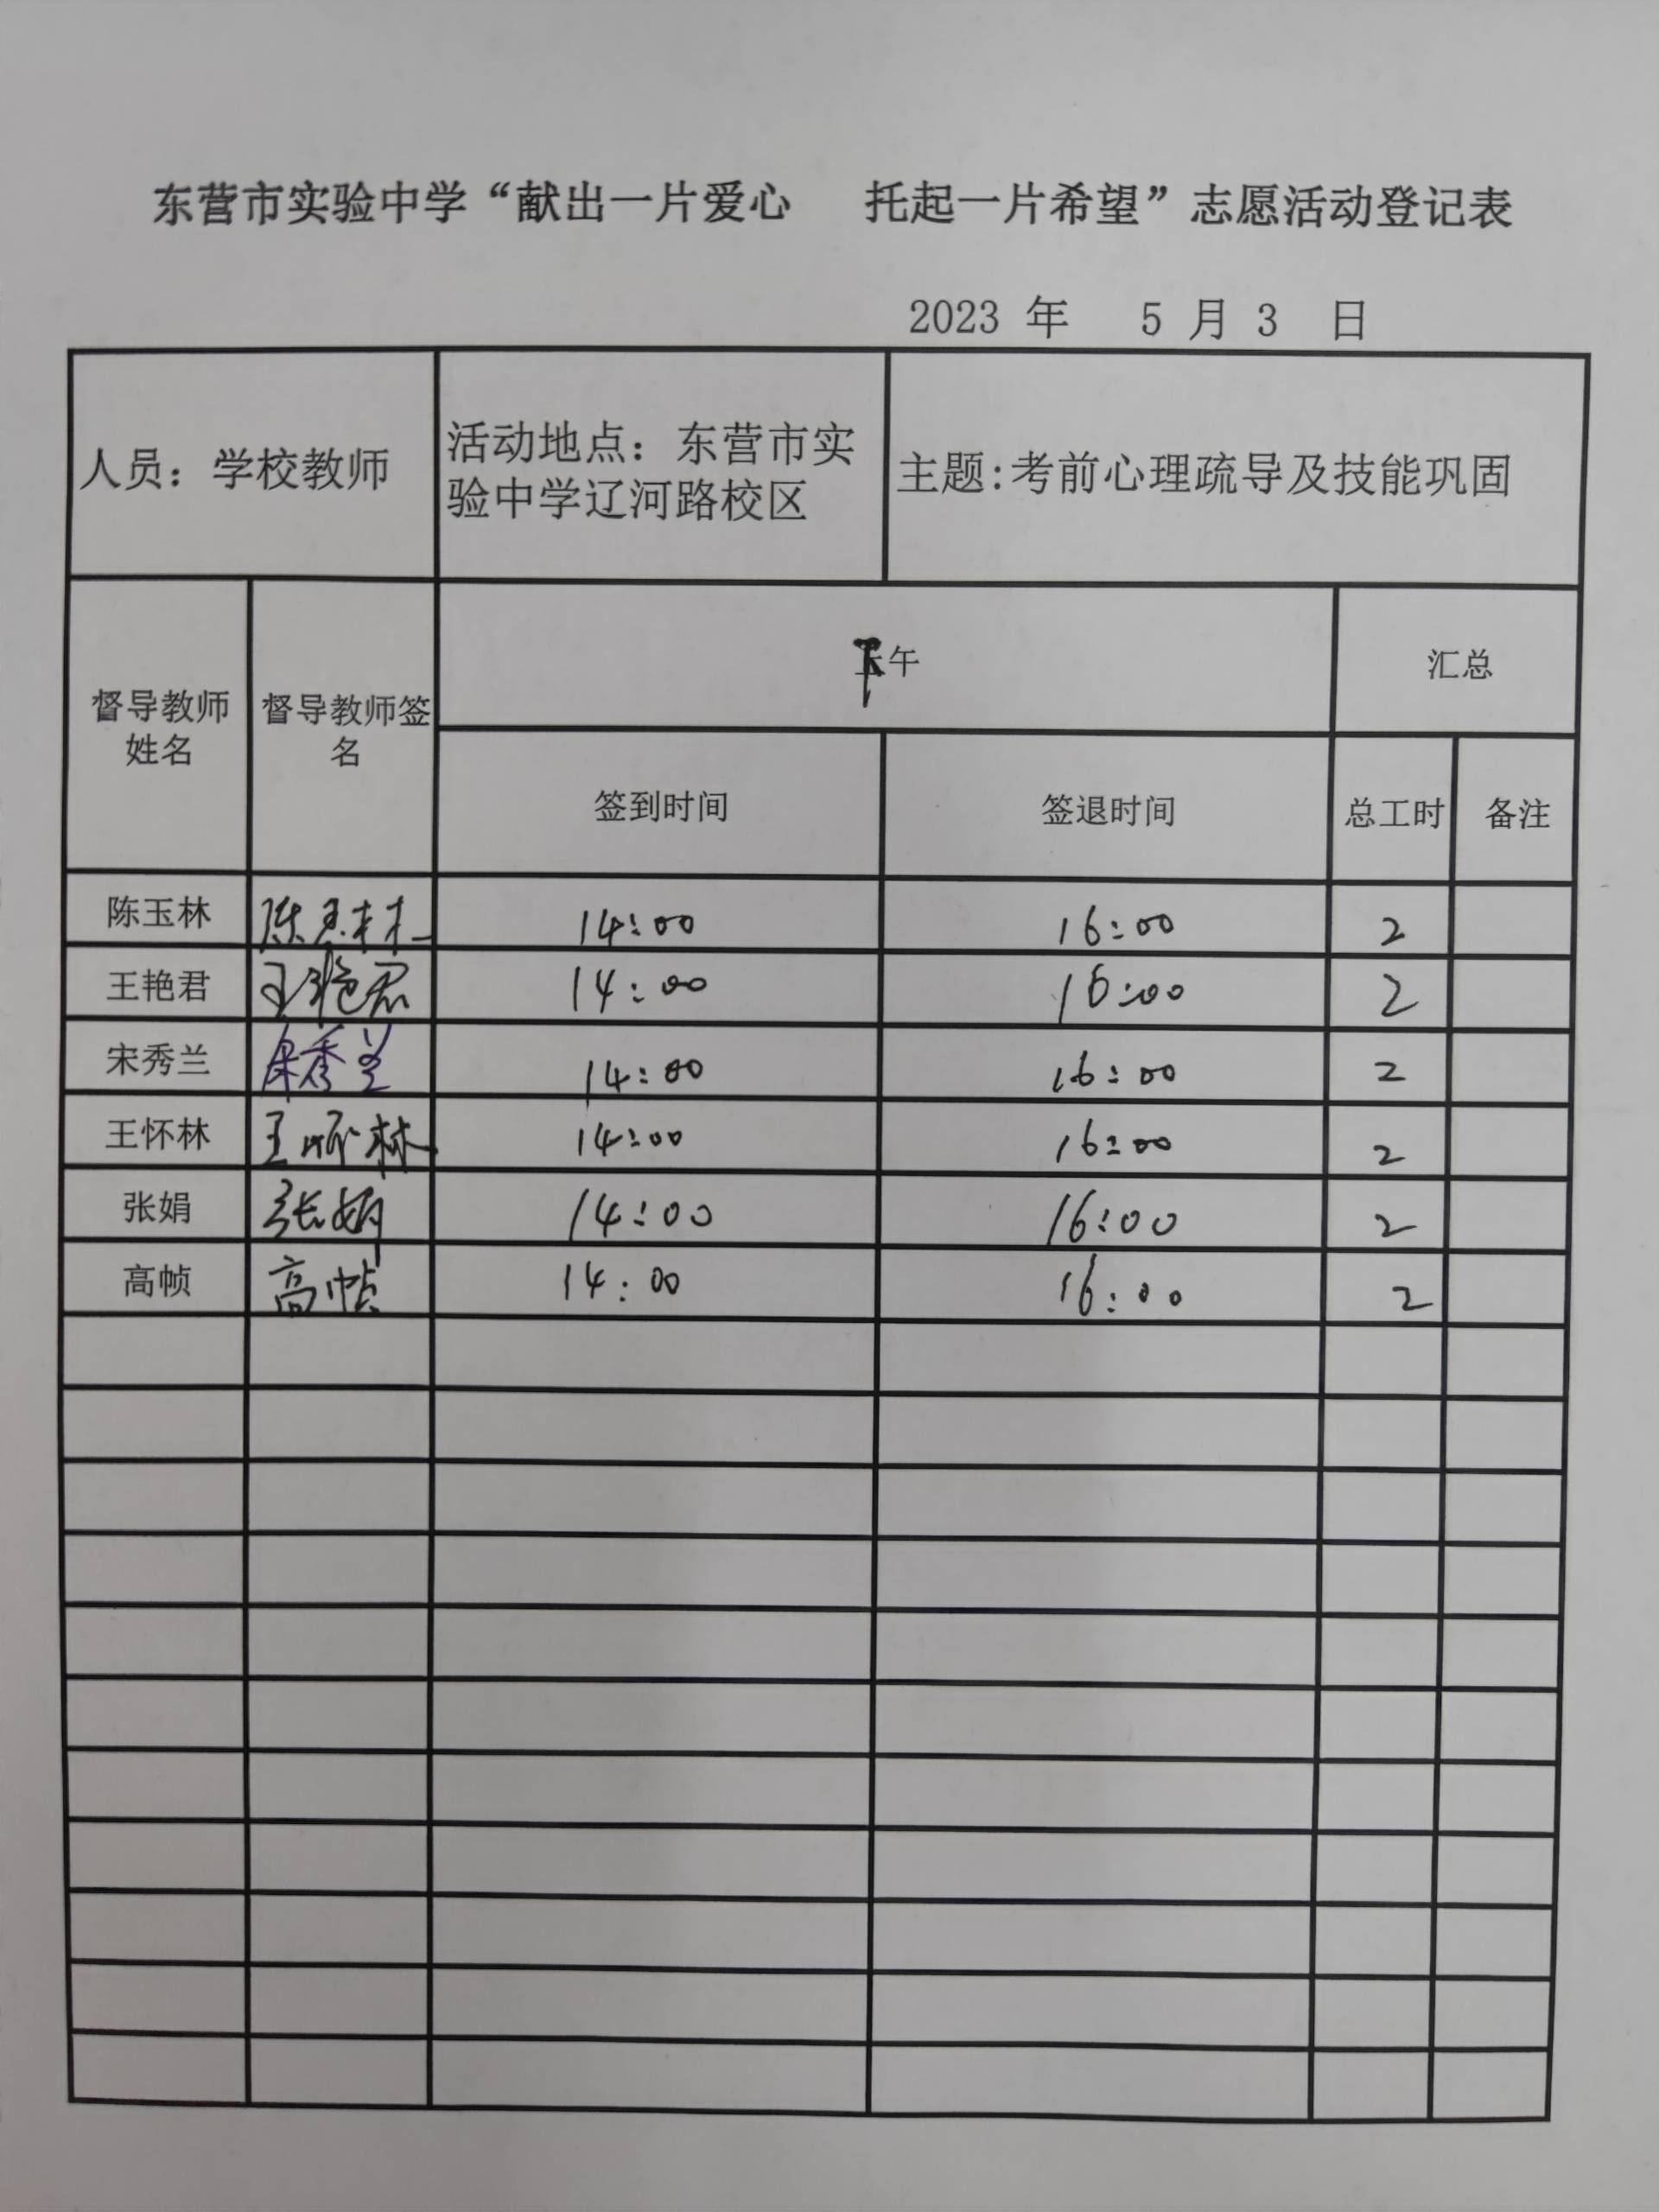 东营市实验中学“献出一片爱心 托起一片希望”志愿活动登记表
2023 年 5 月 3 日
人员：学校教师 活动地点：东营市实验中学辽河路校区 主题:考前心理疏导及技能巩固
督导教师姓名 督导教师签名 下午 汇总
签到时间 签退时间 总工时 备注
陈玉林 陈玉林 14:00 16:00 2
王艳君 王艳君 14:00 16:00 2
宋秀兰 宋秀兰 14:00 16:00 2
王怀林 王怀林 14:00 16:00 2
张娟 张娟 14:00 16:00 2
高帧 高帧 14:00 16:00 2